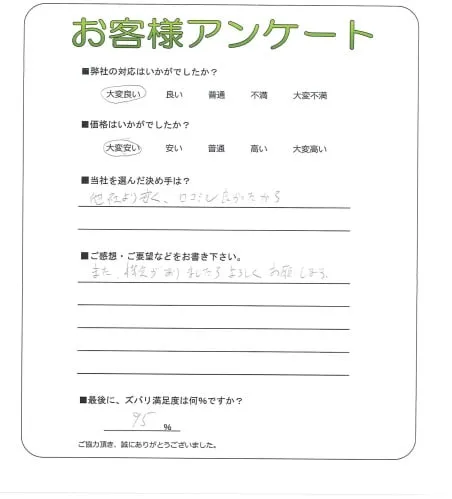 お客様アンケート
■弊社の対応はいかがでしたか？
大変良い 良い 普通 不満 大変不満
■価格はいかがでしたか？
大変安い 安い 普通 高い 大変高い
■当社を選んだ決め手は？
他社より安く、口コミも良かったから
■ご感想・ご要望などをお書き下さい。
また、機会がありましたらよろしくお願いします。
■最後に、ズバリ満足度は何％ですか？
95 %
ご協力頂き、誠にありがとうございました。